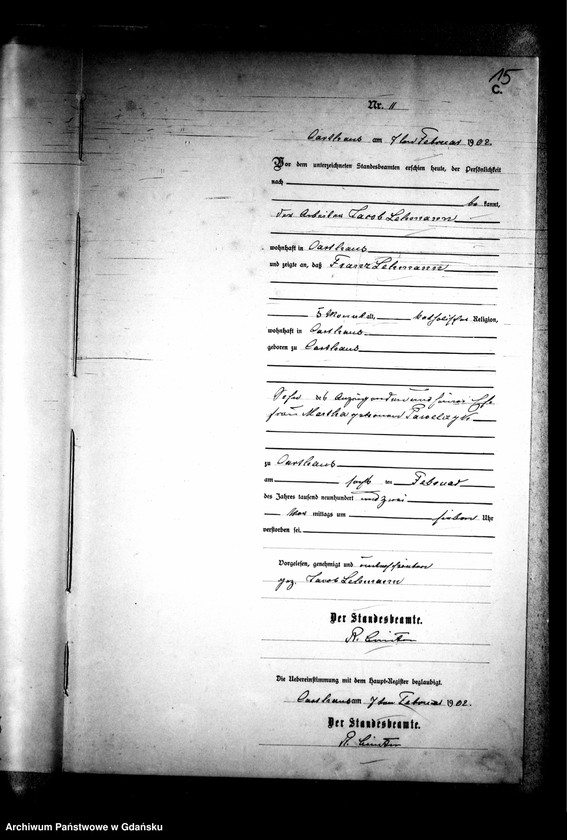 15
C.
Nr. 11
Carthaus am 7ten Februar 1902.
Vor dem unterzeichneten Standesbeamten erschien heute, der Persönlichkeit
nach
be kannt,
der Arbeiter Jacob Lehmann
wohnhaft in Carthaus
und zeigte an, daß Franz Lehmann
5 Monat alt, katholischer Religion,
wohnhaft in Carthaus
geboren zu Carthaus
Sohn des Anzeigenden und seiner Ehe
frau Martha geborenen
zu Carthaus
am Februar
des Jahres tausend neunhundert und zwei
Vor mittags um sieben Uhr
verstorben sei.
Vorgelesen, genehmigt und unterschrieben
gez. Jacob Lehmann
Der Standesbeamte.
R.
Die Uebereinstimmung mit dem Haupt-Register beglaubigt.
Carthaus am 7ten Februar 1902.
Der Standesbeamte.
R.
Archiwum Państwowe w Gdańsku